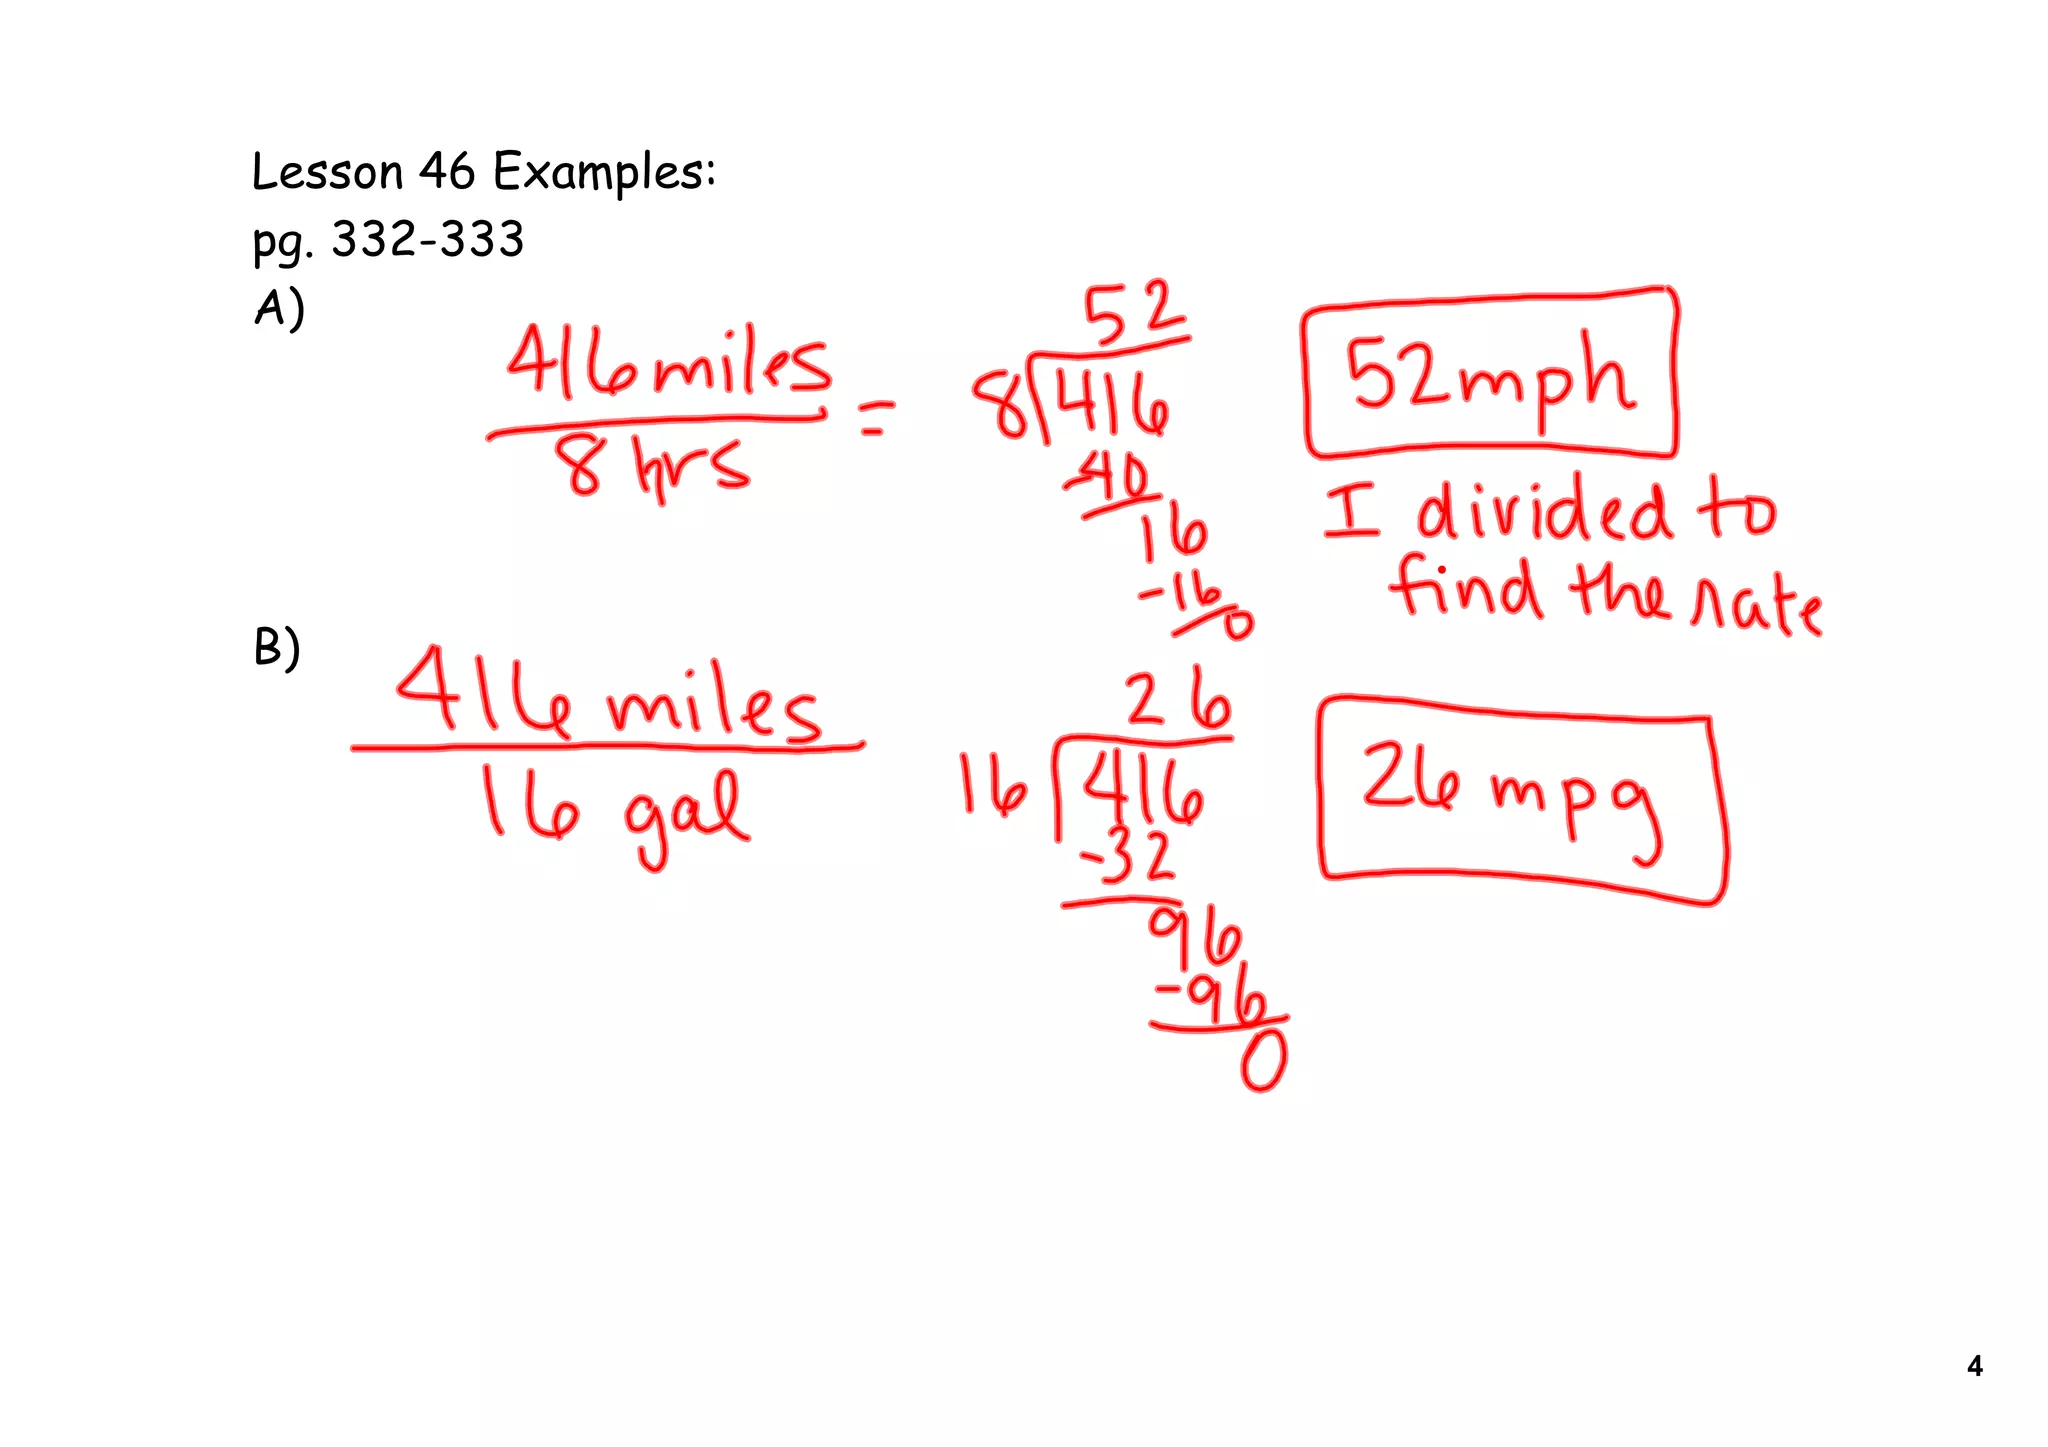 Lesson 46 Examples:
pg. 332-333
A)
416 miles
8 hrs
=
52
8 416
-40
16
-16
0
52mph
I divided to
find the rate
B)
416 miles
16 gal
26
16 416
-32
96
-96
0
26 mpg
4